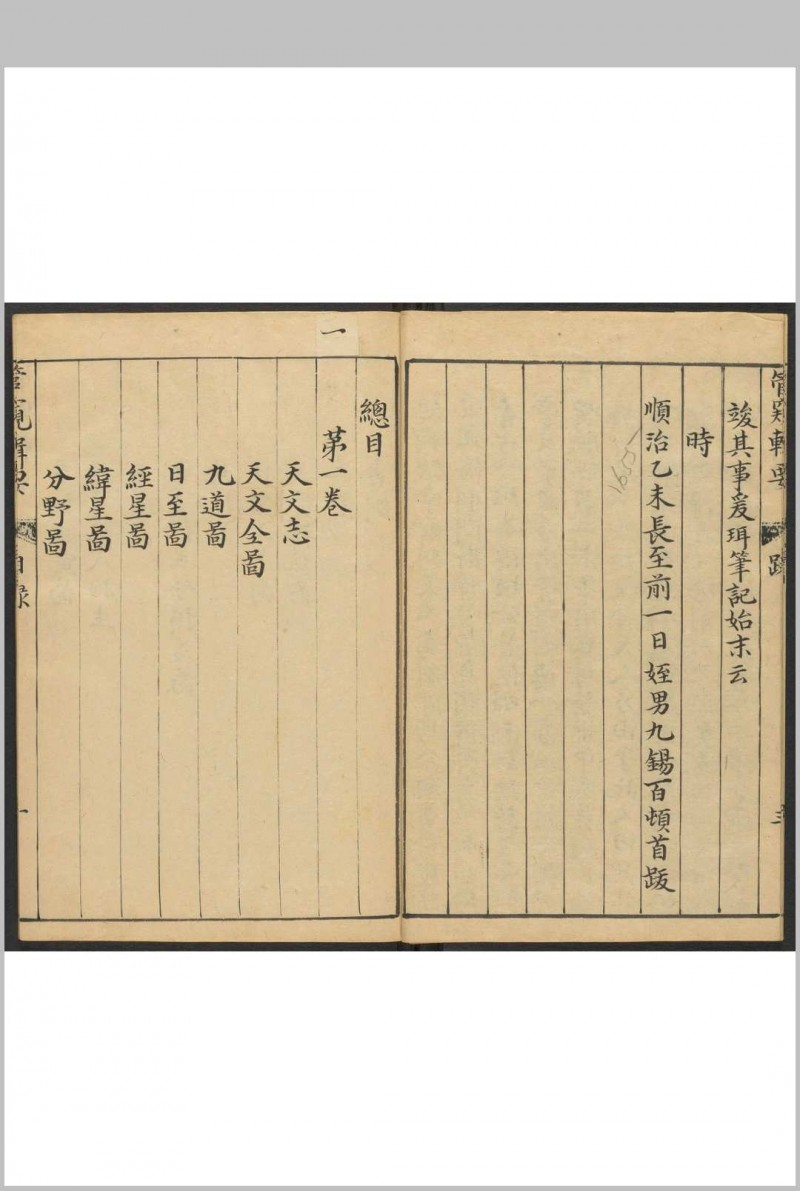 管窺輯要
跋
三
竣其事爰珥筆記始末云
時
順治乙未長至前一日姪男九錫百頓首跋
1655
一
總目
苐一卷
天文志
天文全啚
九道啚
日至啚
經星啚
緯星啚
分野啚
管窺輯要
目録
一